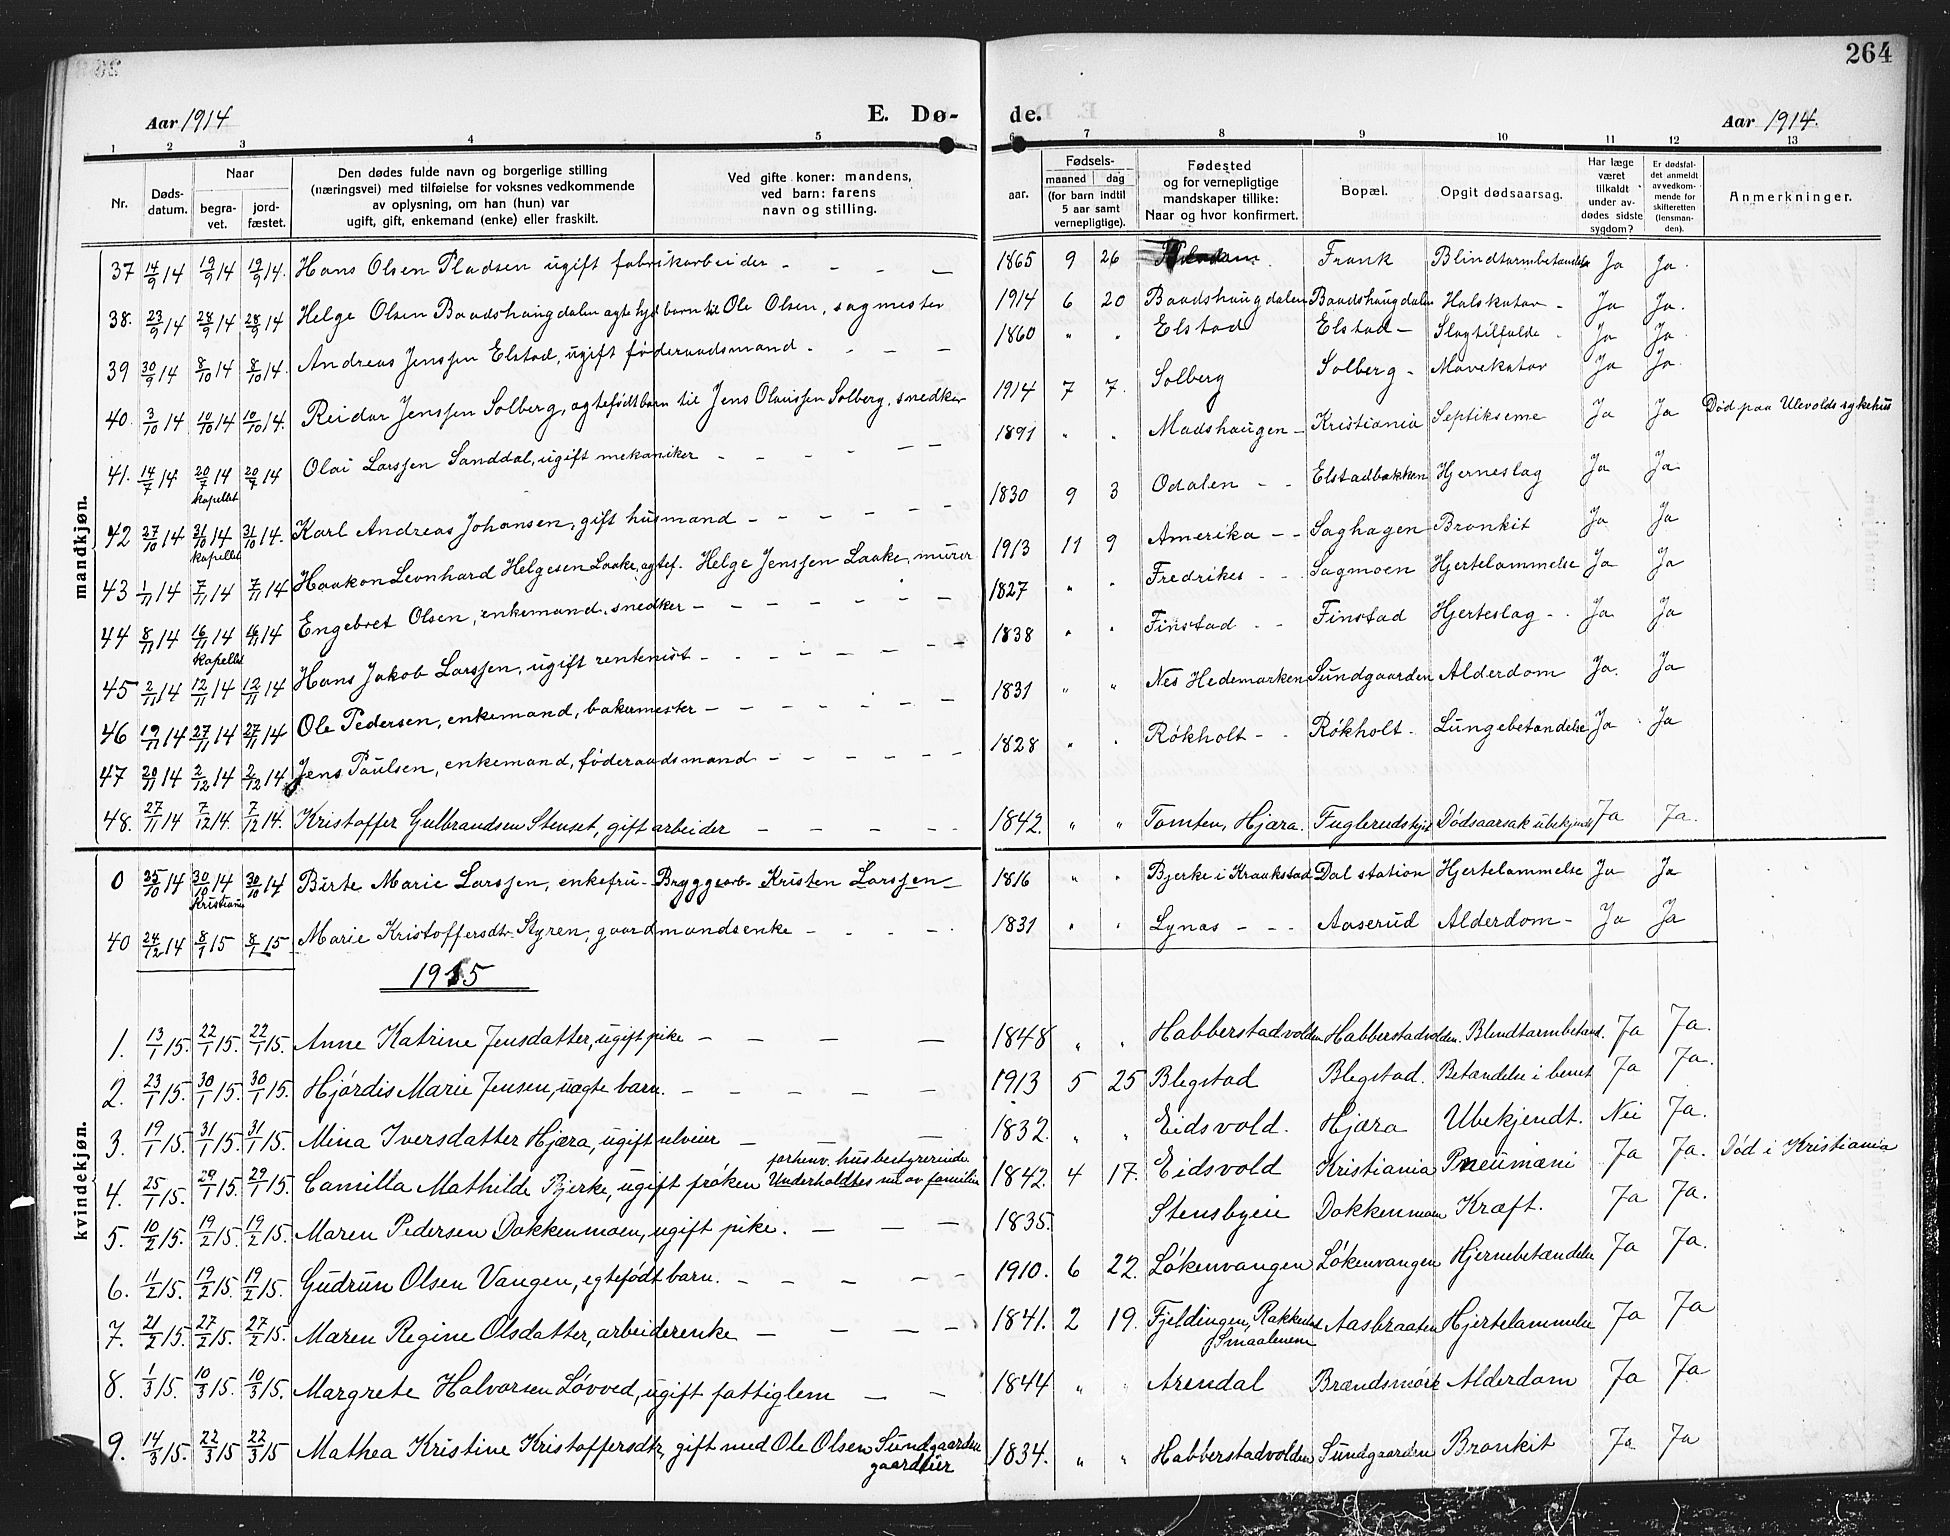 264
Aar 1914
E. Dø-
de.
Aar 1914.
1 2 3 4 5 6 7 8 9 10 11 12 13
Nr.
Døds-
datum.
Naar
begra-
vet.
jord-
fæstet.
Den dødes fulde navn og borgerlige stilling
(næringsvei) med tilføielse for voksnes vedkommende
av oplysning, om han (hun) var
ugift, gift, enkemand (enke) eller fraskilt.
Ved gifte koner: mandens,
ved barn: farens
navn og stilling.
Fødsels-
aar.
maaned dag
(for barn indtil
5 aar samt
vernepligtige).
Fødested
og for vernepligtige
mandskaper tillike:
Naar og hvor konfirmert.
Bopæl.
Opgit dødsaarsag.
Har læge
været
tilkaldt
under av-
dødes sidste
sygdom?
Er dødsfal-
det anmeldt
av vedkom-
mende for
skifteretten
(lensman-
den).
Anmerkninger.
mandkjøn.
37 14/9 14 19/9 14 19/9 14. Hans Olsen Pladsen ugift fabrikarbeider - - - - 1865 9 26 Frank Blindtarmbetændelse Ja Ja.
38. 23/9 14 28/9 14 28/9 14 Helge Olsen Baadshaugdalen egte født barn til Ole Olsen, sagmester 1914 6 20 Baadshaugdalen Baadshaugdalen Halskatar - Ja Ja.
39 30/9 14 8/10 14 8/10 14. Andreas Jenssen Elstad, ugift føderaadsmand - - - - 1860 " " Elstad Elstad - Slagtilfælde - Ja Ja.
40. 3/10 14 10/10 14 10/10 14. Reidar Jenssen Solberg, egtefødt barn til Jens Olaussen Solberg, snedker 1914 7 7. Solberg Solberg - Mavekatar Ja Ja.
41. 14/7 14. 20/7 14 20/7 14 Olai Larssen Sanddal, ugift mekaniker - - - - 1891 " " Madshaugen - Kristiania Septikseme Ja Ja Død paa Ulevolds sykehus
kapellet
42 27/10 14 31/10 14 31/10 14. Karl Andreas Johansen, gift husmand - - - - 1830 9 3 Odalen - - Elstadbakken Hjerneslag Ja Ja
kapellet
43 1/11 14 7/11 14 7/11 14 Haakon Leonhard Helgesen Laake, egtef. Helge Jenssen Laake, murer 1913 11 9 Amerika - - Saghagen Bronkit Ja Ja
44 8/11 14 16/11 14 16/11 14 Engebret Olsen, enkemand, snedker - - - - 1827 " " Fredrikes - - Sagmoen Hjertelammelse Ja Ja
kapellet
45 2/11 14 12/11 14 12/11 14 Hans Jakob Larssen, ugift rentenist - - - - 1838 " " Finstad - - Finstad Hjerteslag - - Ja Ja
46 19/11 14 27/11 14 27/11 14 Ole Pedersen, enkemand, bakermester - - - - 1831 " " Nes Hedemarken Sundgaarden Alderdom Ja. Ja
47 20/11 14 2/12 14 2/12 14 Jens Paulsen, enkemand, føderaadsmand - - - - 1828 " " Røkholt - - Røkholt - Lungebetændelse Ja Ja
48. 27/11 14 7/12 14. 7/12 14. Kristoffer Gulbrandsen Stenset, gift arbeider - - - - 1842. " " Tomten, Hjæra. Dødsaarsak ubekjendt Ja Ja.
kvindekjøn.
0 25/10 14 30/10 14 30/10 14 Birte Marie Larssen, enkefru - Bryggearb. Kristen Larssen - 1816 " " Bjerke i Kraakstad Dal station Hjertelammelse Ja Ja
Kristiania
40 24/12 14 8/1 15 8/1 15 Marie Kristoffersdtr. Styren, gaardmandsenke - - - - 1831 " " Lynas - - - Aaserud Alderdom - Ja Ja
1915
1. 13/1 15. 22/1 15. 22/1 15. Anne Katrine Jensdatter, ugift pike - - - - 1848 " " Habberstadvolden Habberstadvolden. Blindtarmbetænd. Ja Ja.
2. 23/1 15. 30/1 15. 30/1 15. Hjørdis Marie Jensen, uægte barn. - - - - 1913 5 25 Blegstad Blegstad. Betændelse i benet Ja Ja.
3. 19/1 15. 31/1 15. 31/1 15. Mina Iversdatter Hjæra, ugift - - - 1832. " " Eidsvold. Hjæra Ubekjendt. Nei Ja.
forhenv. husbestyrerinde
4. 25/1 15. 29/1 15. 29/1 15. Camilla Mathilde Bjerke, ugift frøken Underholdtes nu av familien 1842. 4 17. Eidsvold Kristiania Pneumoni Ja Ja. Død i Kristiania
5. 10/2 15. 19/2 15. 19/2 15. Maren Pedersen Dokkenmoen, ugift pike. - - - 1835. Stensbyeie Dokkenmoen Kræft. Ja Ja.
6. 11/2 15. 19/2 15. 19/2 15. Gudrun Olsen Vangen, egtefødt barn. - - - - 1910. 6 22. Løkenvangen Løkenvangen Hjernebetændelse Ja Ja.
7. 21/2 15. 27/2 15. 27/2 15. Maren Regine Olsdatter, arbeiderenke - - - - 1841. 2 19. Fjeldingen, Rakkestad Aasbraaten Hjertelammelse Ja Ja
Smaalenene
8. 1/3 15. 10/3 15. 10/3 15. Margrete Halvorsen Løvved, ugift fattiglem - - 1844 " " Arendal Brændsmørk Alderdom Ja Ja
9. 14/3 15. 22/3 15 22/3 15 Mathea Kristine Kristoffersdtr, gift med Ole Olsen Sundgaarden 1834. " " Habberstadvolden Sundgaarden Bronkit Ja Ja
gaardeier